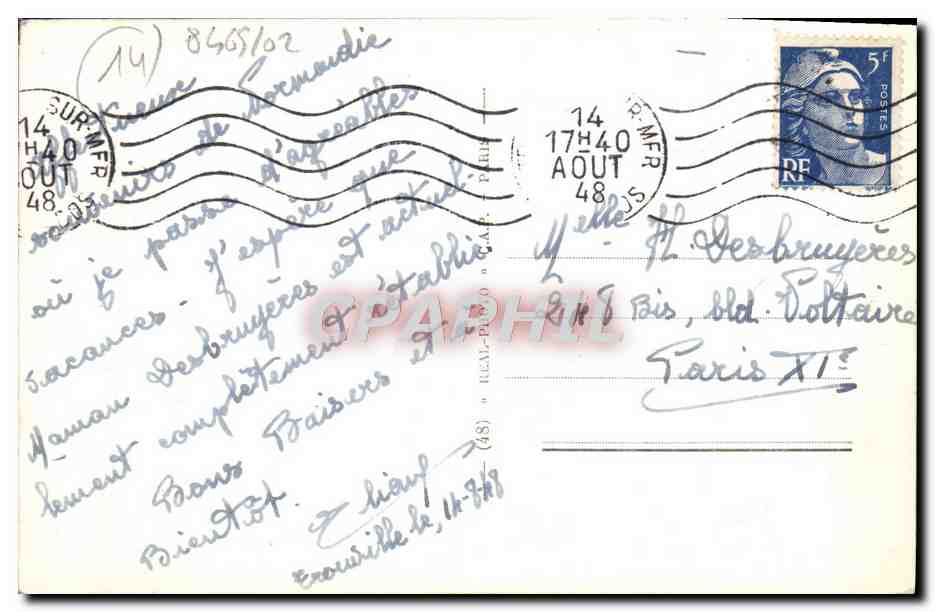 (14)
8465/02
Affectueux
souvenirs de Normandie
où je passe d'agréables
vacances. J'espère que
Maman Desbruyères est actuel-
lement complètement rétablie.
Bons Baisers et à
Bientôt.
Trouville le, 14-8-48
SUR-MER
14
H 40
OUT
48
(48) " REAL-PHOTO " C.A.P. PARIS
R-MER
14
17H40
AOUT
48
5F
POSTES
RF
Melle Desbruyères
Bis, bld. Voltaire
Paris XIe
CPAPHIL